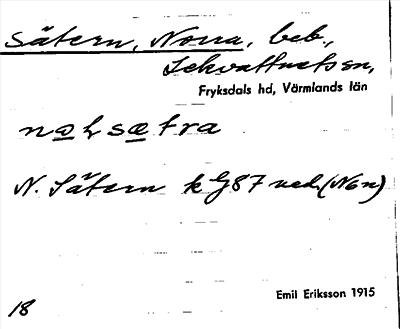 Sätern, Norra, beb.,
Lekvattnets sn,
Fryksdals hd, Värmlands län
N. Sätern k G87 ved. (Nön)
Emil Eriksson 1915
18